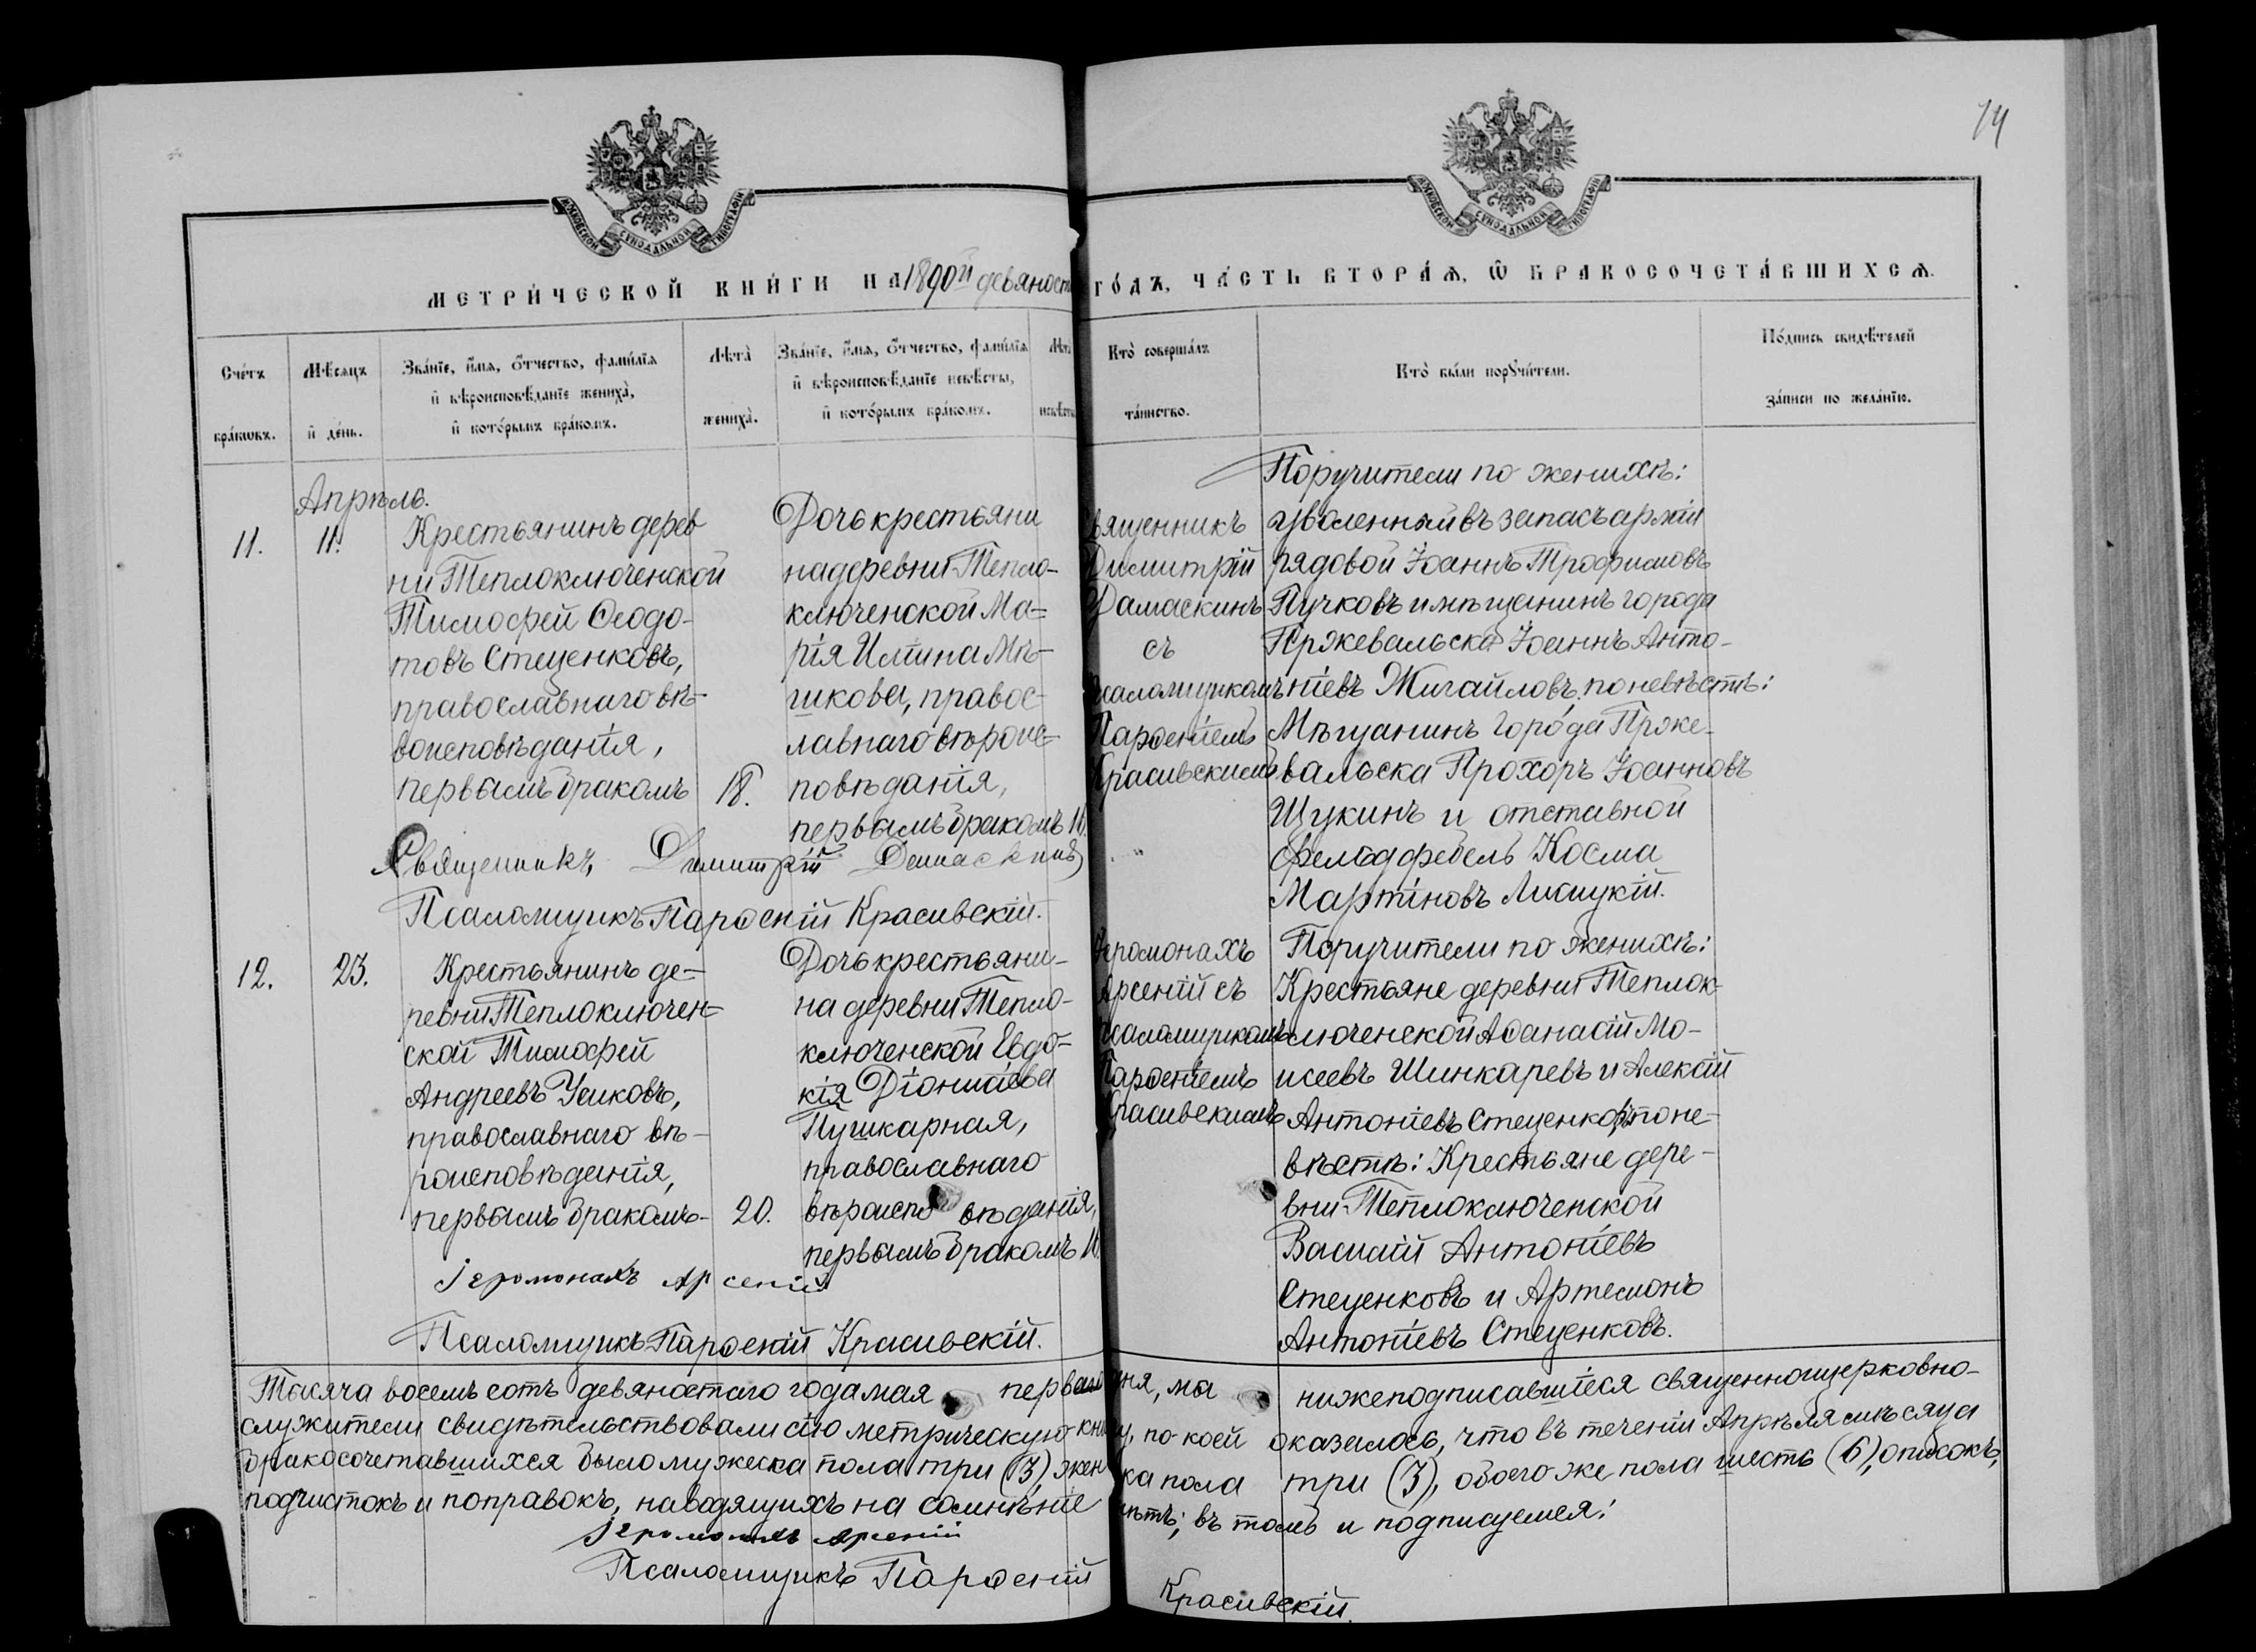 14
МОСКОВСКОЙ СѴНОДАЛЬНОЙ ТИПОГРАФІИ
МОСКОВСКОЙ СѴНОДАЛЬНОЙ ТИПОГРАФІИ
МЕТРИ́ЧЕСКОЙ КНИ́ГИ НА 1890й девяност
ГО́ДЪ, ЧА́СТЬ ВТОРА́Ѧ, Ѿ БРАКОСОЧЕТА́ВШИХСѦ.
Сче́тъ
бра́кѡвъ.
Мѣ́сяцъ
и҆ де́нь.
Зва́нїе, и҆́мѧ, ѻ҆́тчество, фами́лїѧ
и҆ вѣроисповѣ́данїе жениха̀,
и҆ кото́рымъ бра́комъ.
Лѣ́та
жениха̀.
Зва́нїе, и҆́мѧ, ѻ҆́тчество, фами́лїѧ
и҆ вѣроисповѣ́данїе невѣ́сты,
и҆ кото́рымъ бра́комъ.
Лѣ́та
невѣсты
Кто̀ соверша́лъ
та́инство.
Кто̀ бы́ли порꙋчи́тели.
По́дпись свидѣ́телей
за́писи по жела́нїю.
Апрѣль.
11.
11.
Крестьянинъ дерев
ни Теплоключенской
Тимофей Ѳеодо-
товъ Стеценковъ,
православнаго вѣ-
воисповѣданія,
первымъ бракомъ
18.
Дочь крестьяни
на деревни Тепло-
ключенской Ма-
рія Ильина Мѣ-
шкова, правос-
лавнаго вѣроис-
повѣданія,
первымъ бракомъ 16.
вященникъ
Димитрій
Дамаскинъ
съ
псаломщикомъ
Парѳеніемъ
Красивскимъ
Поручители по женихѣ:
уволенный въ запасъ арміи
рядовой Іоаннъ Трофимовъ
Пучковъ и мѣщанинъ города
Пржевальска Іоаннъ Анто-
ніевъ Жигайловъ, по невѣстѣ:
Мѣщанинъ города Прже-
вальска Прохоръ Іоанновъ
Щукинъ и отставной
фельдфебель Косма
Мартіновъ Лисицкій.
Священникъ Димитрій Дамаскинъ
Псаломщикъ Парѳеній Красивскій.
12.
23.
Крестьянинъ де-
ревни Теплоключен-
ской Тимофей
Андреевъ Усиковъ,
православнаго вѣ-
роисповѣданія,
первымъ бракомъ
20.
Дочь крестьяни-
на деревни Тепло-
ключенской Евдо-
кія Діонисіева
Пушкарная,
православнаго
вѣроиспо вѣданія,
первымъ бракомъ 16.
Іеромонахъ
Арсеній съ
псаломщикомъ
Парѳеніемъ
Красивскимъ
Поручители по женихѣ:
Крестьяне деревни Теплок-
люченской Аѳанасій Мо-
исеевъ Шинкаревъ и Алексій
Антоніевъ Стеценковъ, по не-
вѣстѣ: Крестьяне дере-
вни Теплоключенской
Василій Антоніевъ
Стеценковъ и Артемонъ
Антоніевъ Стеценковъ.
Іеромонахъ Арсеній
Псаломщикъ Парѳеній Красивскій.
Тысяча восемьсотъ девяностаго года мая перваго дня, мы нижеподписавшіеся священноцерковно-
служители свидѣтельствовали сію метрическую книгу, по коей оказалось, что въ теченіи Апрѣля мѣсяца
бракосочетавшихся было мужеска пола три (3), женска пола три (3), обоего же пола шесть (6), описокъ,
подчистокъ и поправокъ, наводящихъ на сомнѣніе нѣтъ; въ томъ и подписуемся:
Іеромонахъ Арсеній
Псаломщикъ Парѳеній Красивскій.